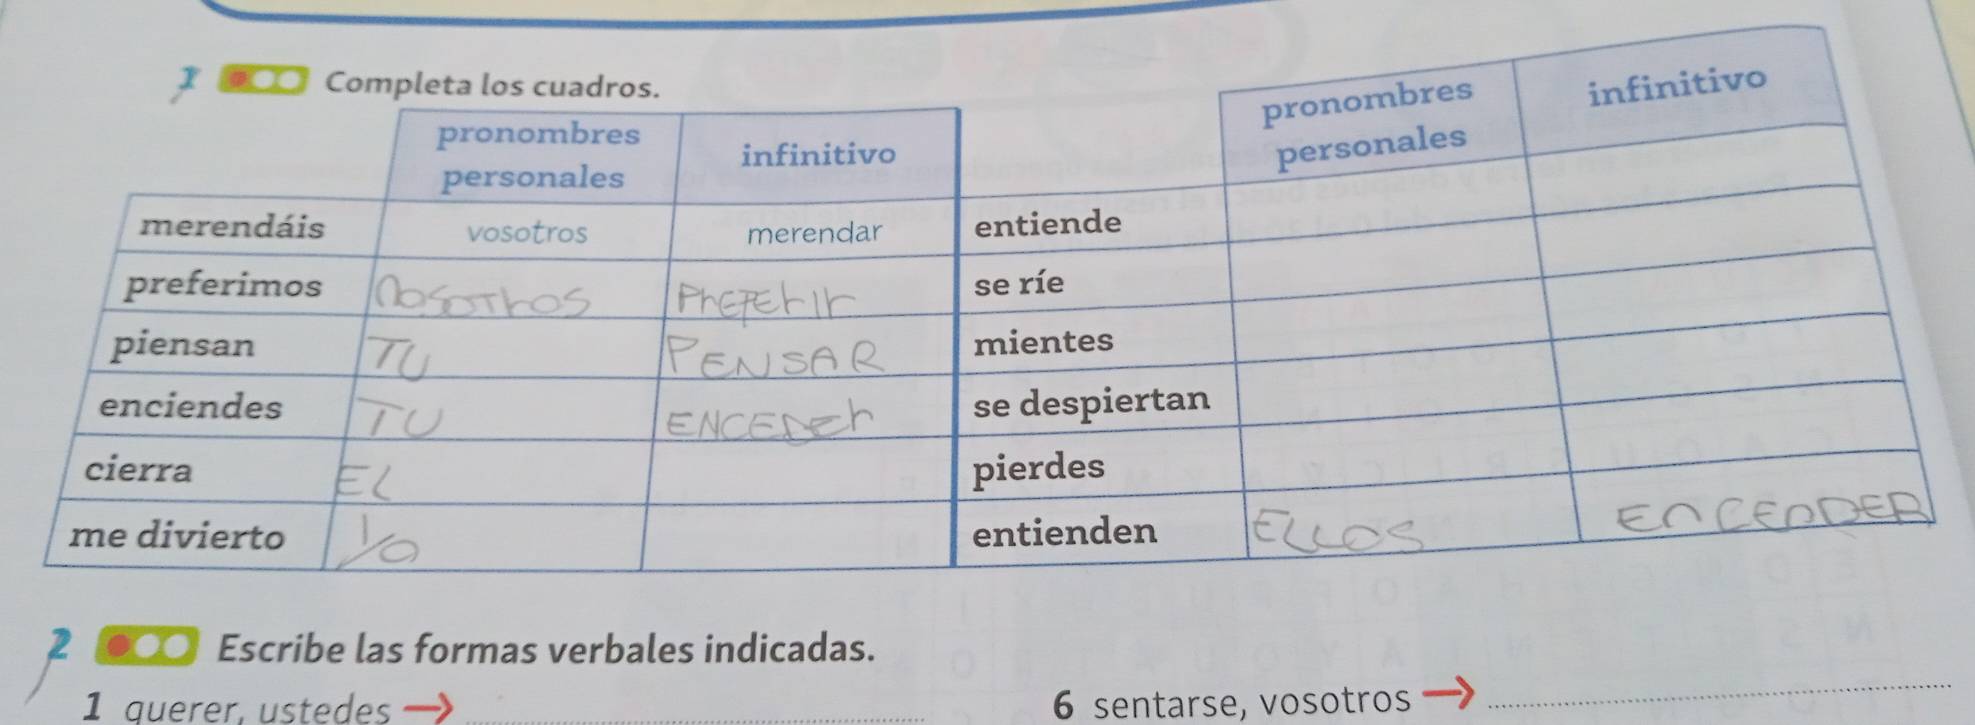 1 Completa los cuadros.
pronombres personales infinitivo
merendáis vosotros merendar
preferimos NOSOTROS PREFERIR
piensan TU PENSAR
enciendes TU ENCEDER
cierra EL
me divierto YO
pronombres personales infinitivo
entiende
se ríe
mientes
se despiertan
pierdes
entienden ELLOS ENCENDER
2 Escribe las formas verbales indicadas.
1 querer, ustedes →
6 sentarse, vosotros →